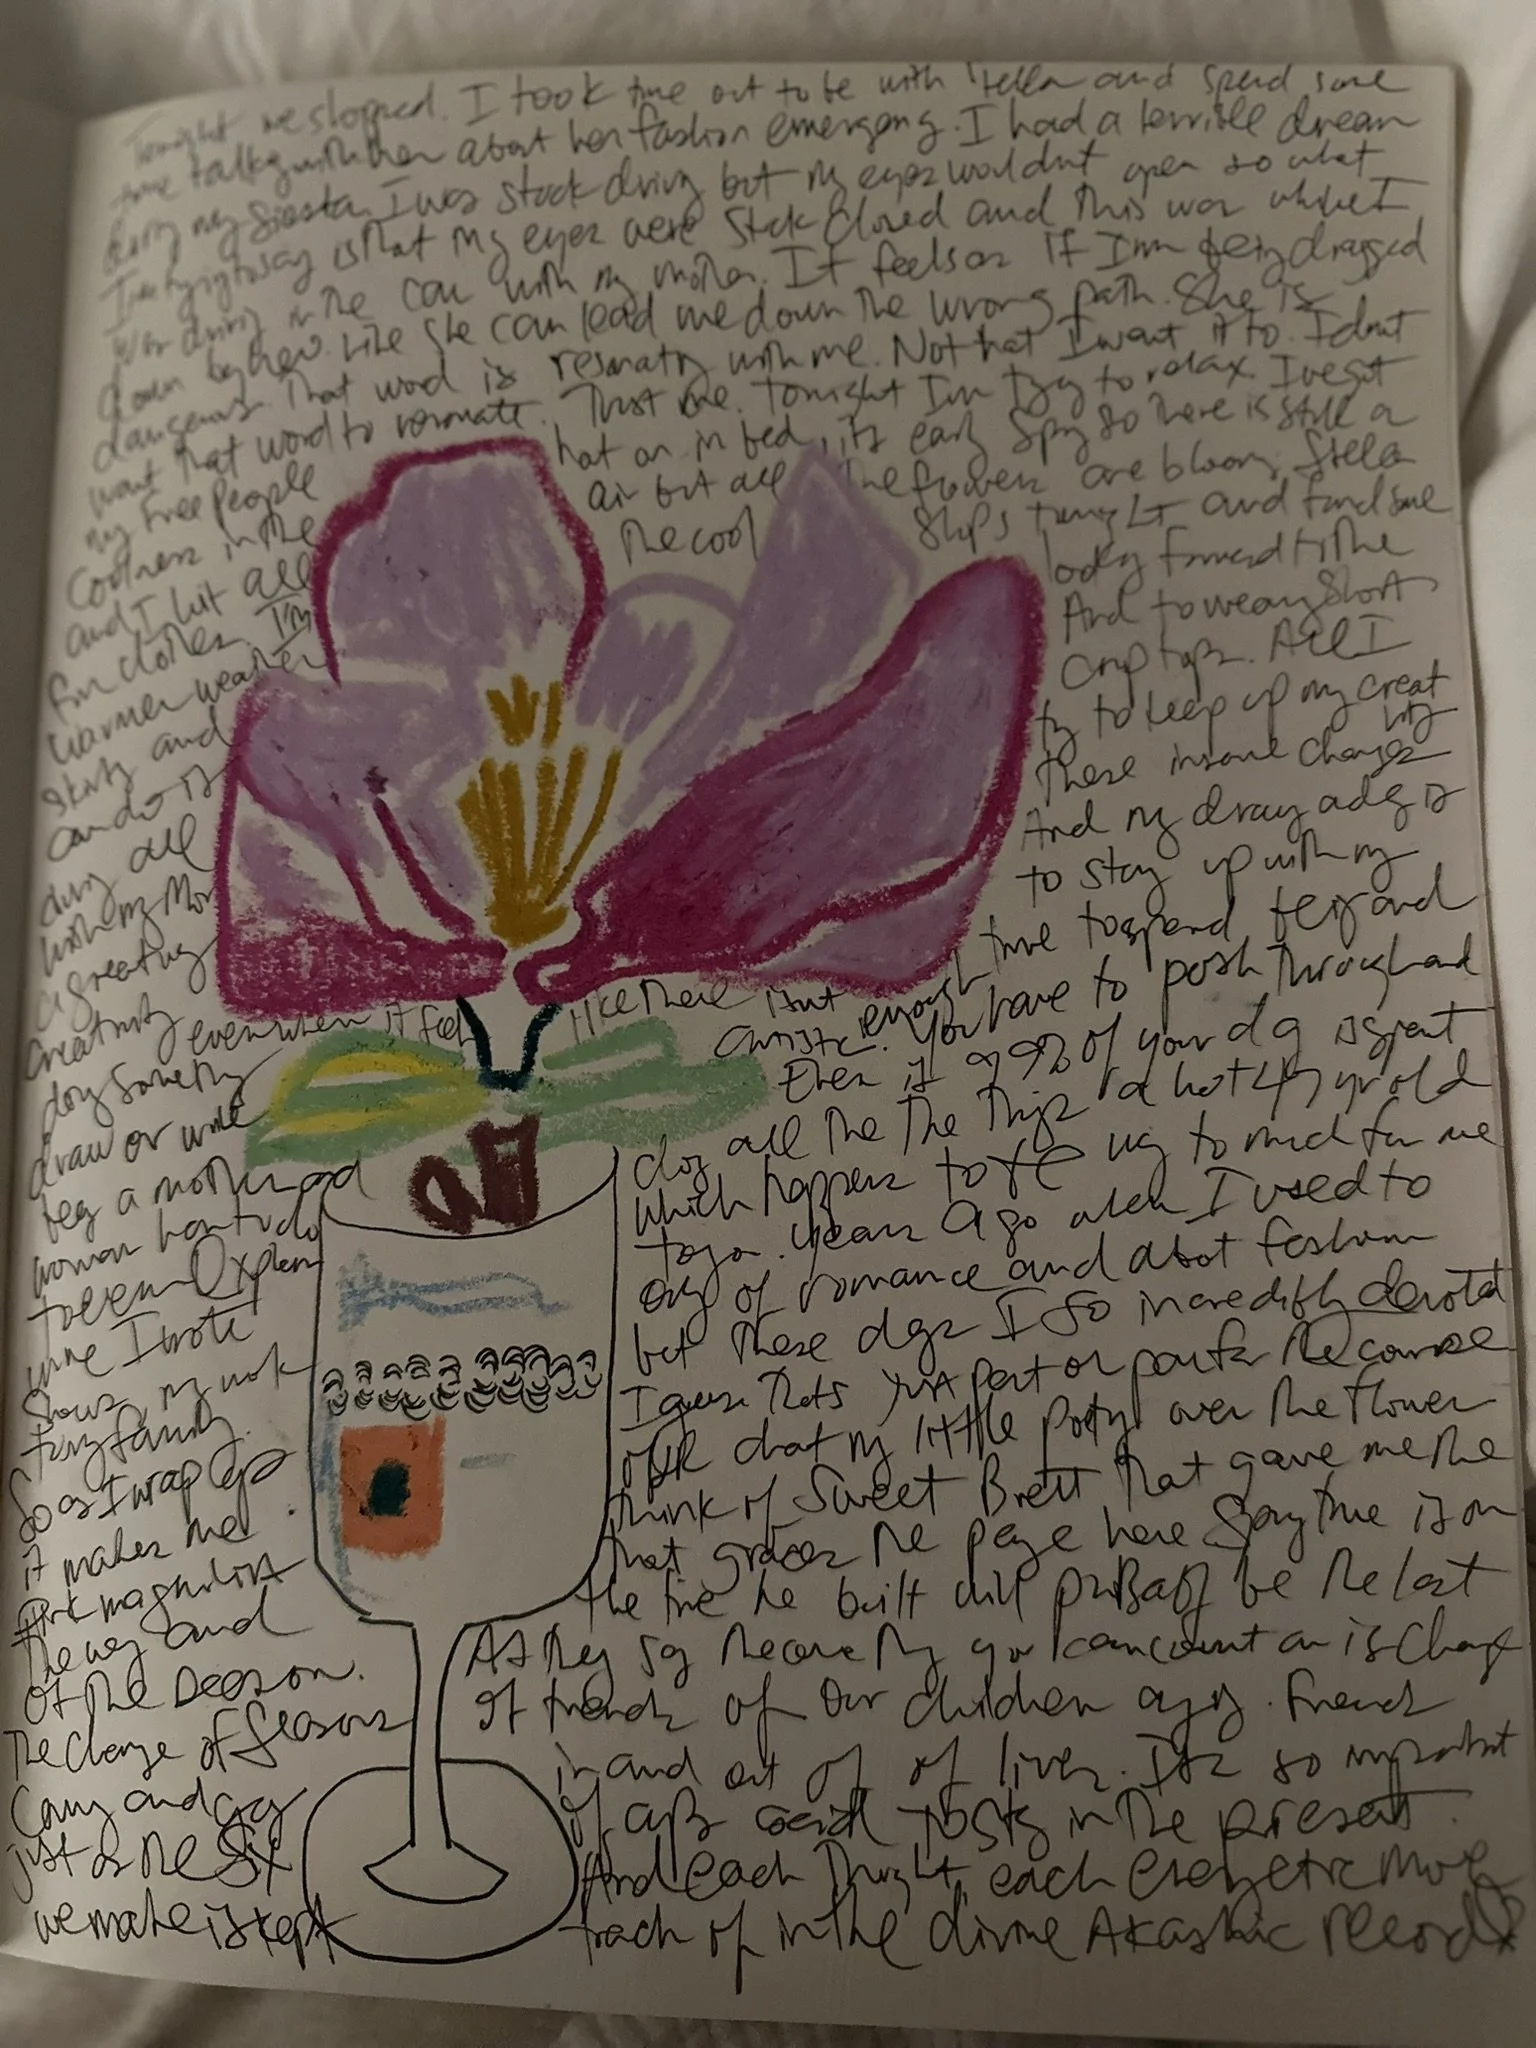 Tonight we stopped. I took time out to be with Stella and spend some
time talking with her about her fashion emergency. I had a terrible dream
during my siesta. I was stuck driving but my eyes wouldn't open so what
I'm trying to say is that my eyes were stuck closed and this was while I
was driving in the car with my mother. It feels as if I'm being dragged
down by her. Like she can lead me down the wrong path. She is
dangerous. That word is resonating with me. Not that I want it to. I dont
want that word to resonate. Trust me. Tonight I'm trying to relax. I've got
my Free People hat on in bed, its early Spring so there is still a
coolness in the air but all the flowers are blooming. Stella
and I hit all the cool shops tonight and found some
fun clothes. I'm looking forward to the
warmer weather And to wearing short
skirts and crop tops. All I
can do is try to keep up my creativity
during all these insane changes
with my Mom And my dream
is to stay up with my
creativity even when it feels like there isn't enough time to spend being
artistic. You have to push through and
doing something Even if 99% of your day is spent
draw or write doing all the the things a hot 47 yr old
being a mother and
woman has to do which happens to be way to much for me
to even explain today. Years ago when I used to
wine I wrote only of romance and about fashion
shows, my work but these days I am so incredibly devoted
to my family. I guess that's just part or part for the course
So as I wrap up my little party over the flower
it makes me think of Sweet Brett that gave me the
pink magnolia that graces the page here. Spring time is on
the way and the fire he built will probably be the last
of the season. As they say the one thing you can count on is change
The change of seasons of friends of our children aging. Friends
coming and going in and out of of lives. Its so important
just as the in the present.
And each thought, each energetic move
we make is kept track of in the divine Akashic Records